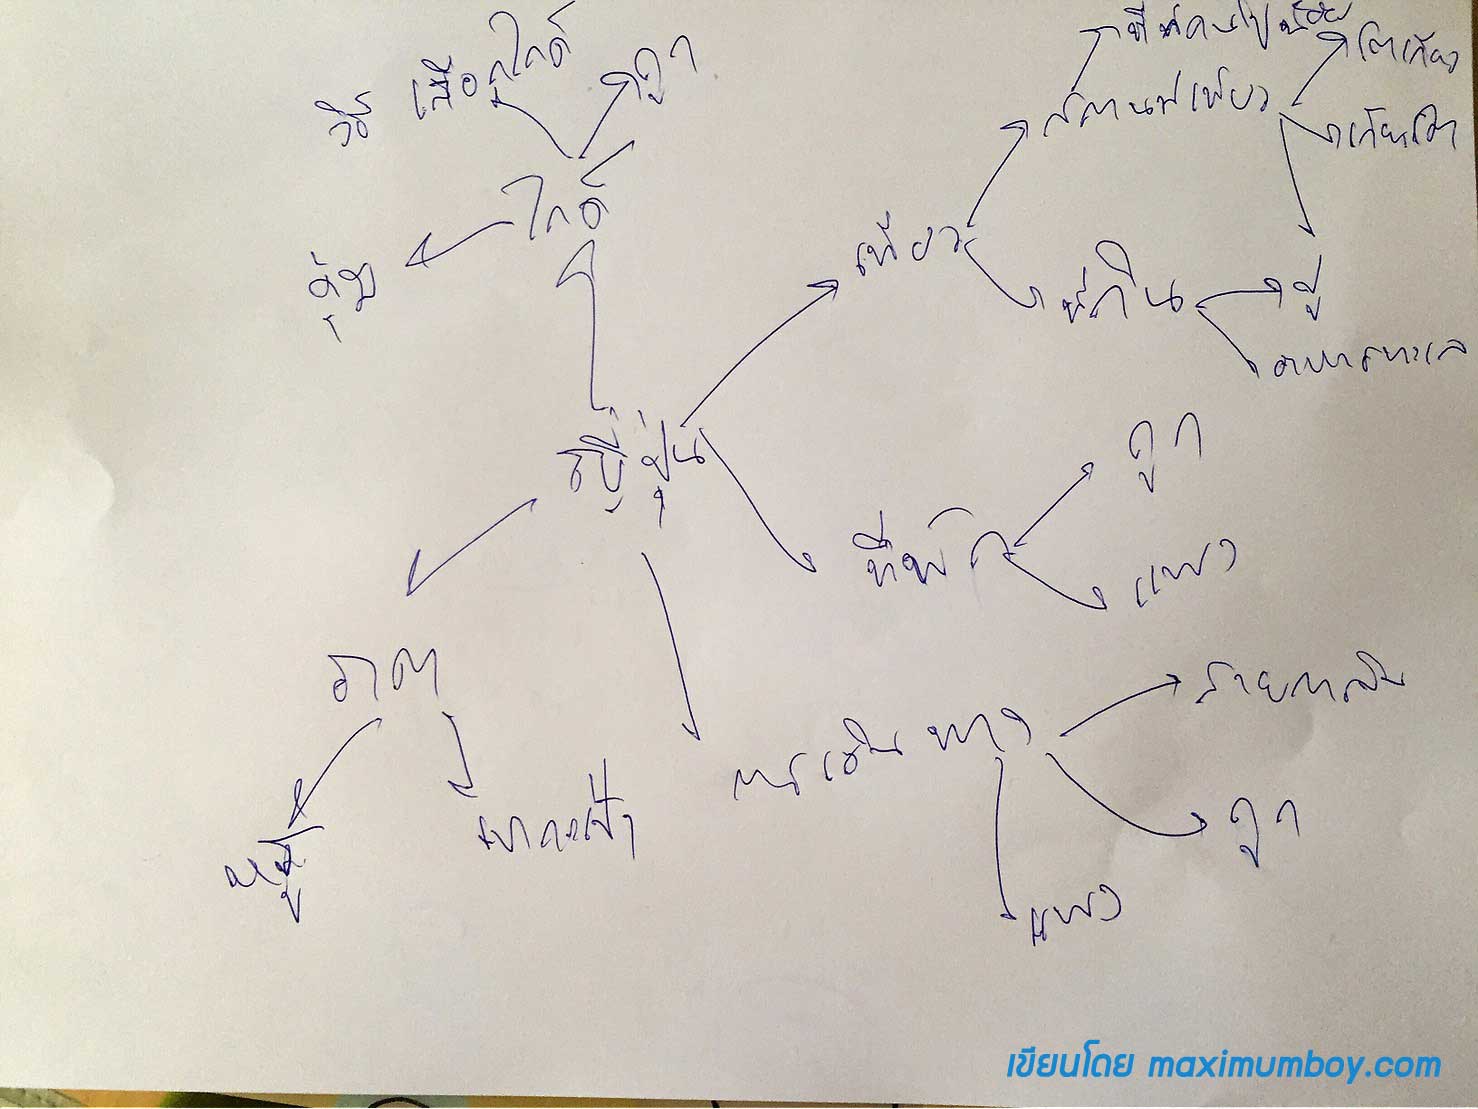 ที่คนไปน้อย
วิธี เลือกไกด์
ถูก
โตเกียว
สถานที่เที่ยว
เกียวโต
ไกด์
เที่ยว
คุ้ม
ที่กิน
ปู
อาหารทะเล
ญี่ปุ่น
ถูก
ที่พัก
แพง
ราคา
สายการบิน
การเดินทาง
หรู
แบกเป้
ถูก
แพง
เขียนโดย maximumboy.com